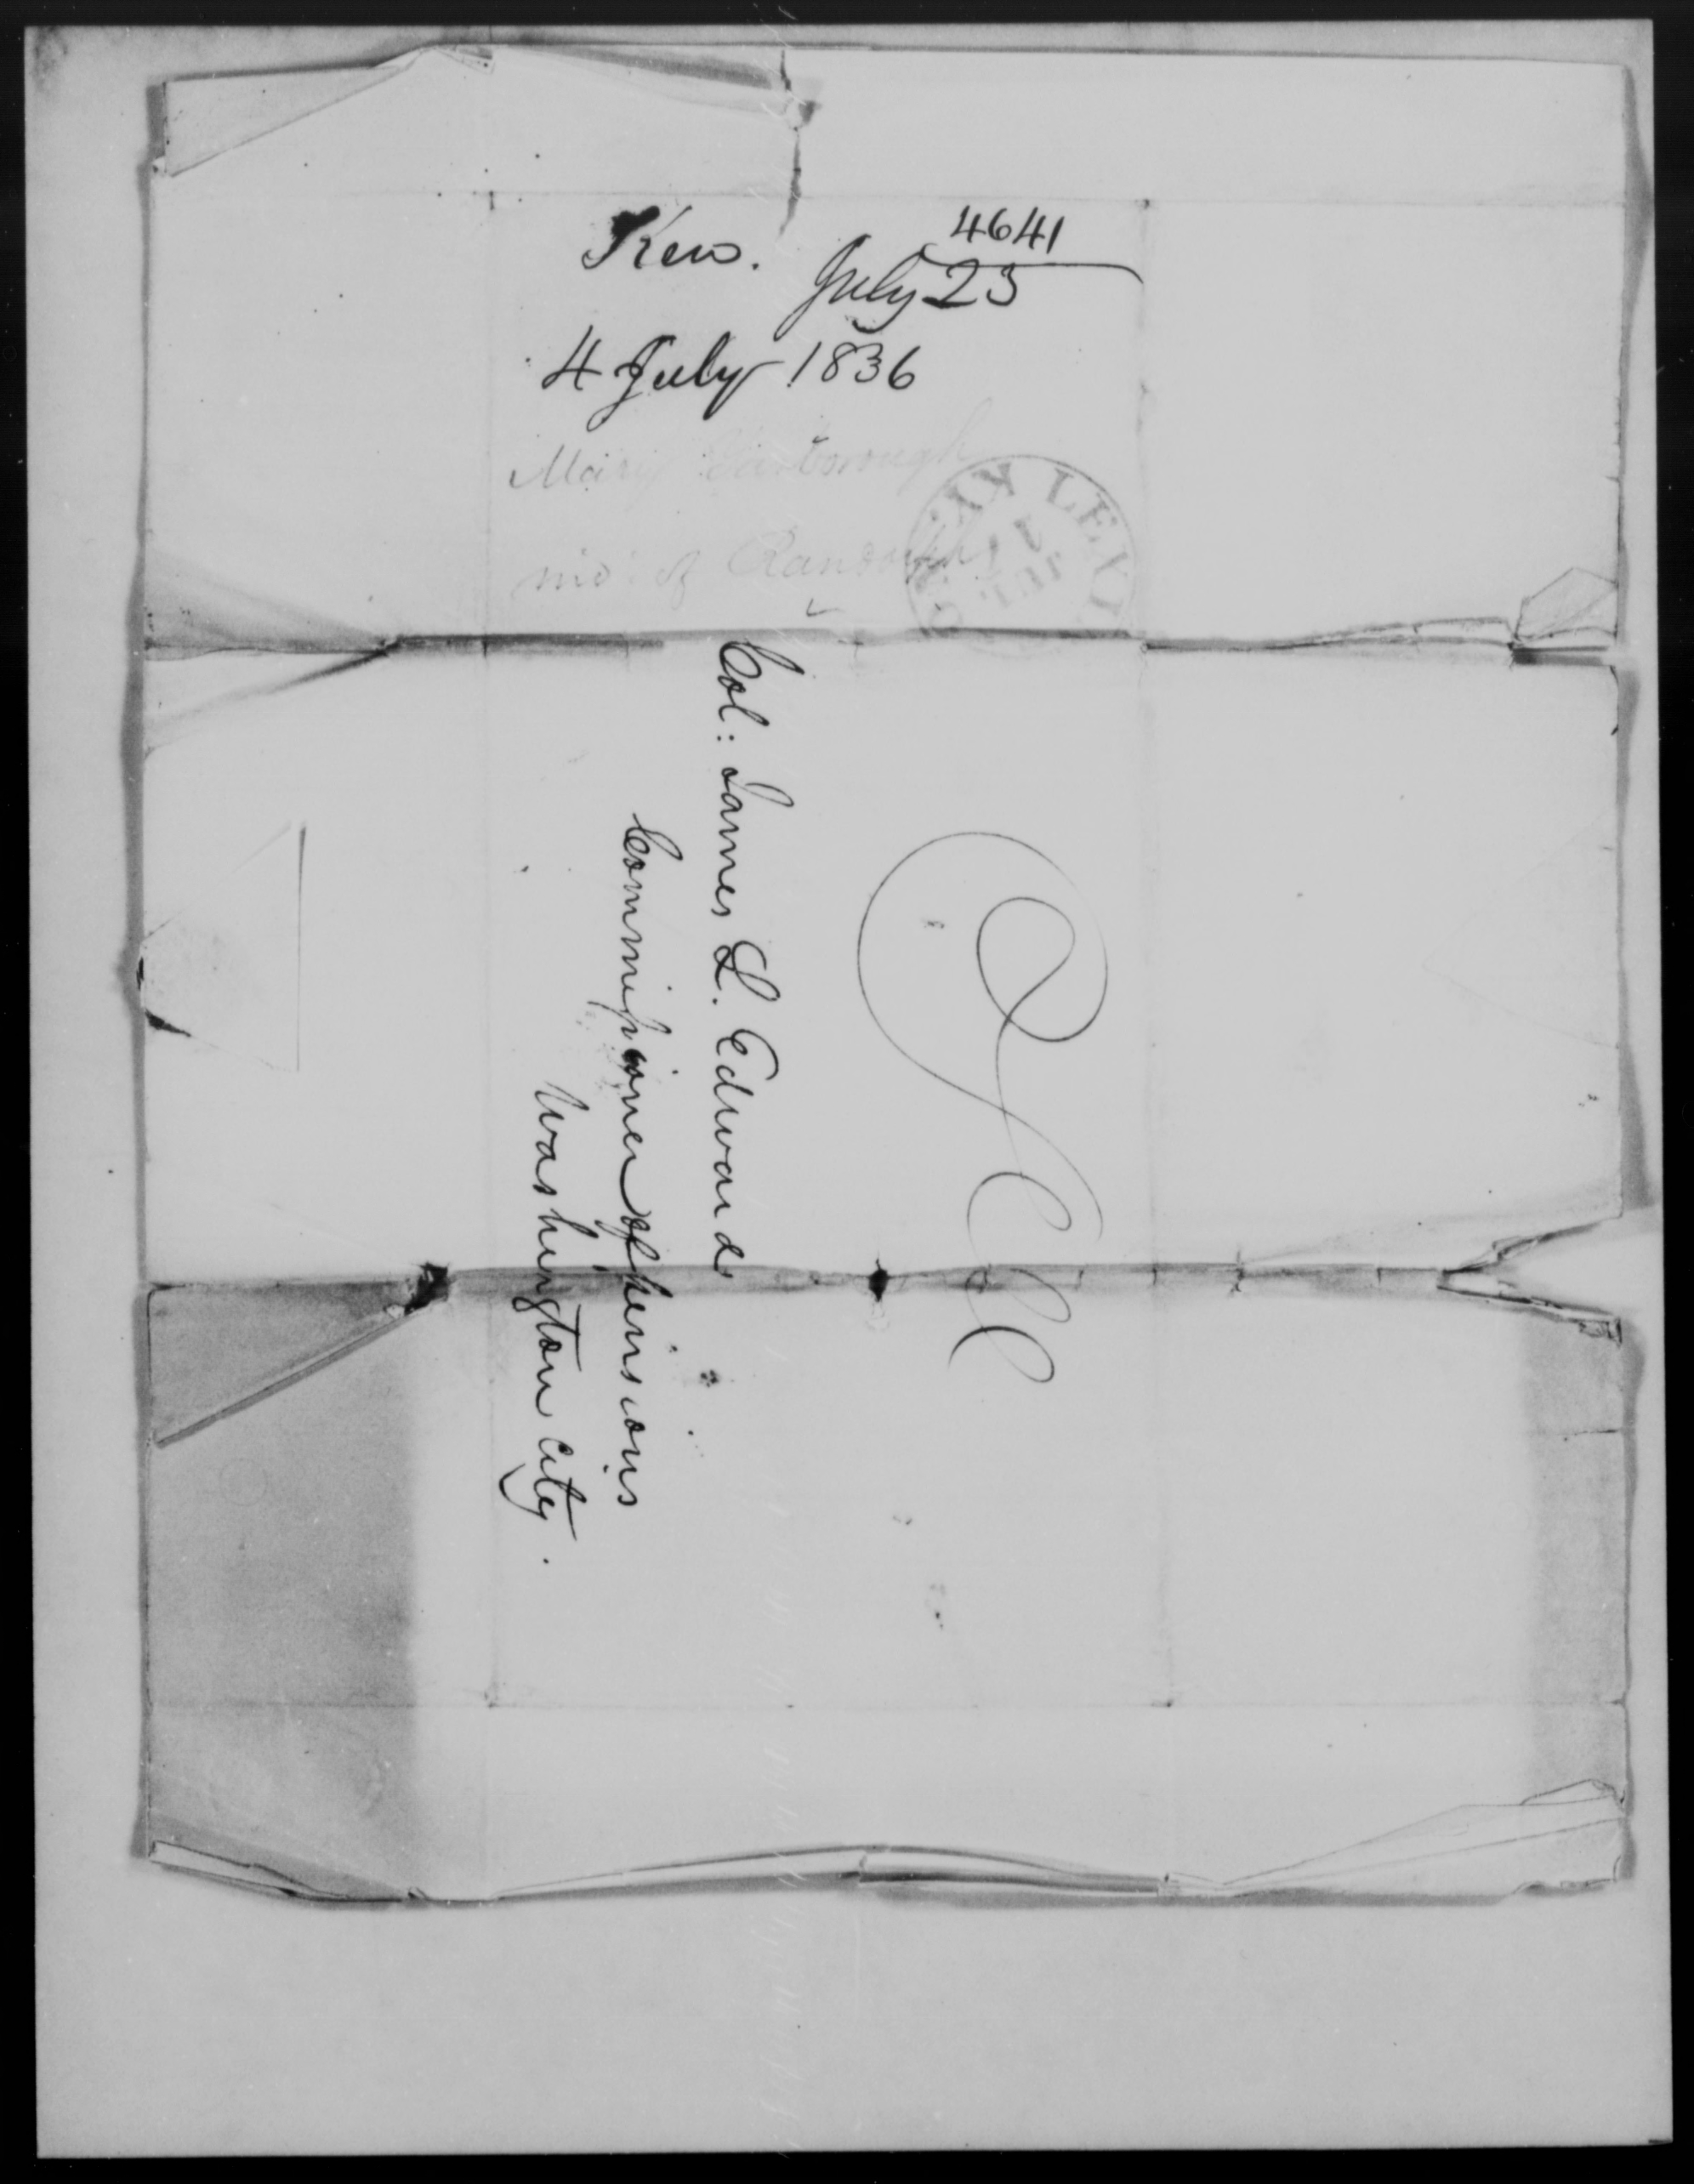 4641
Ken. July 23
4 July 1836
Mary Yarborough
wid. of Randolph
LEXI KY.
JUL
Col: James L. Edwards
Commissioner of Pensions
Washington City.